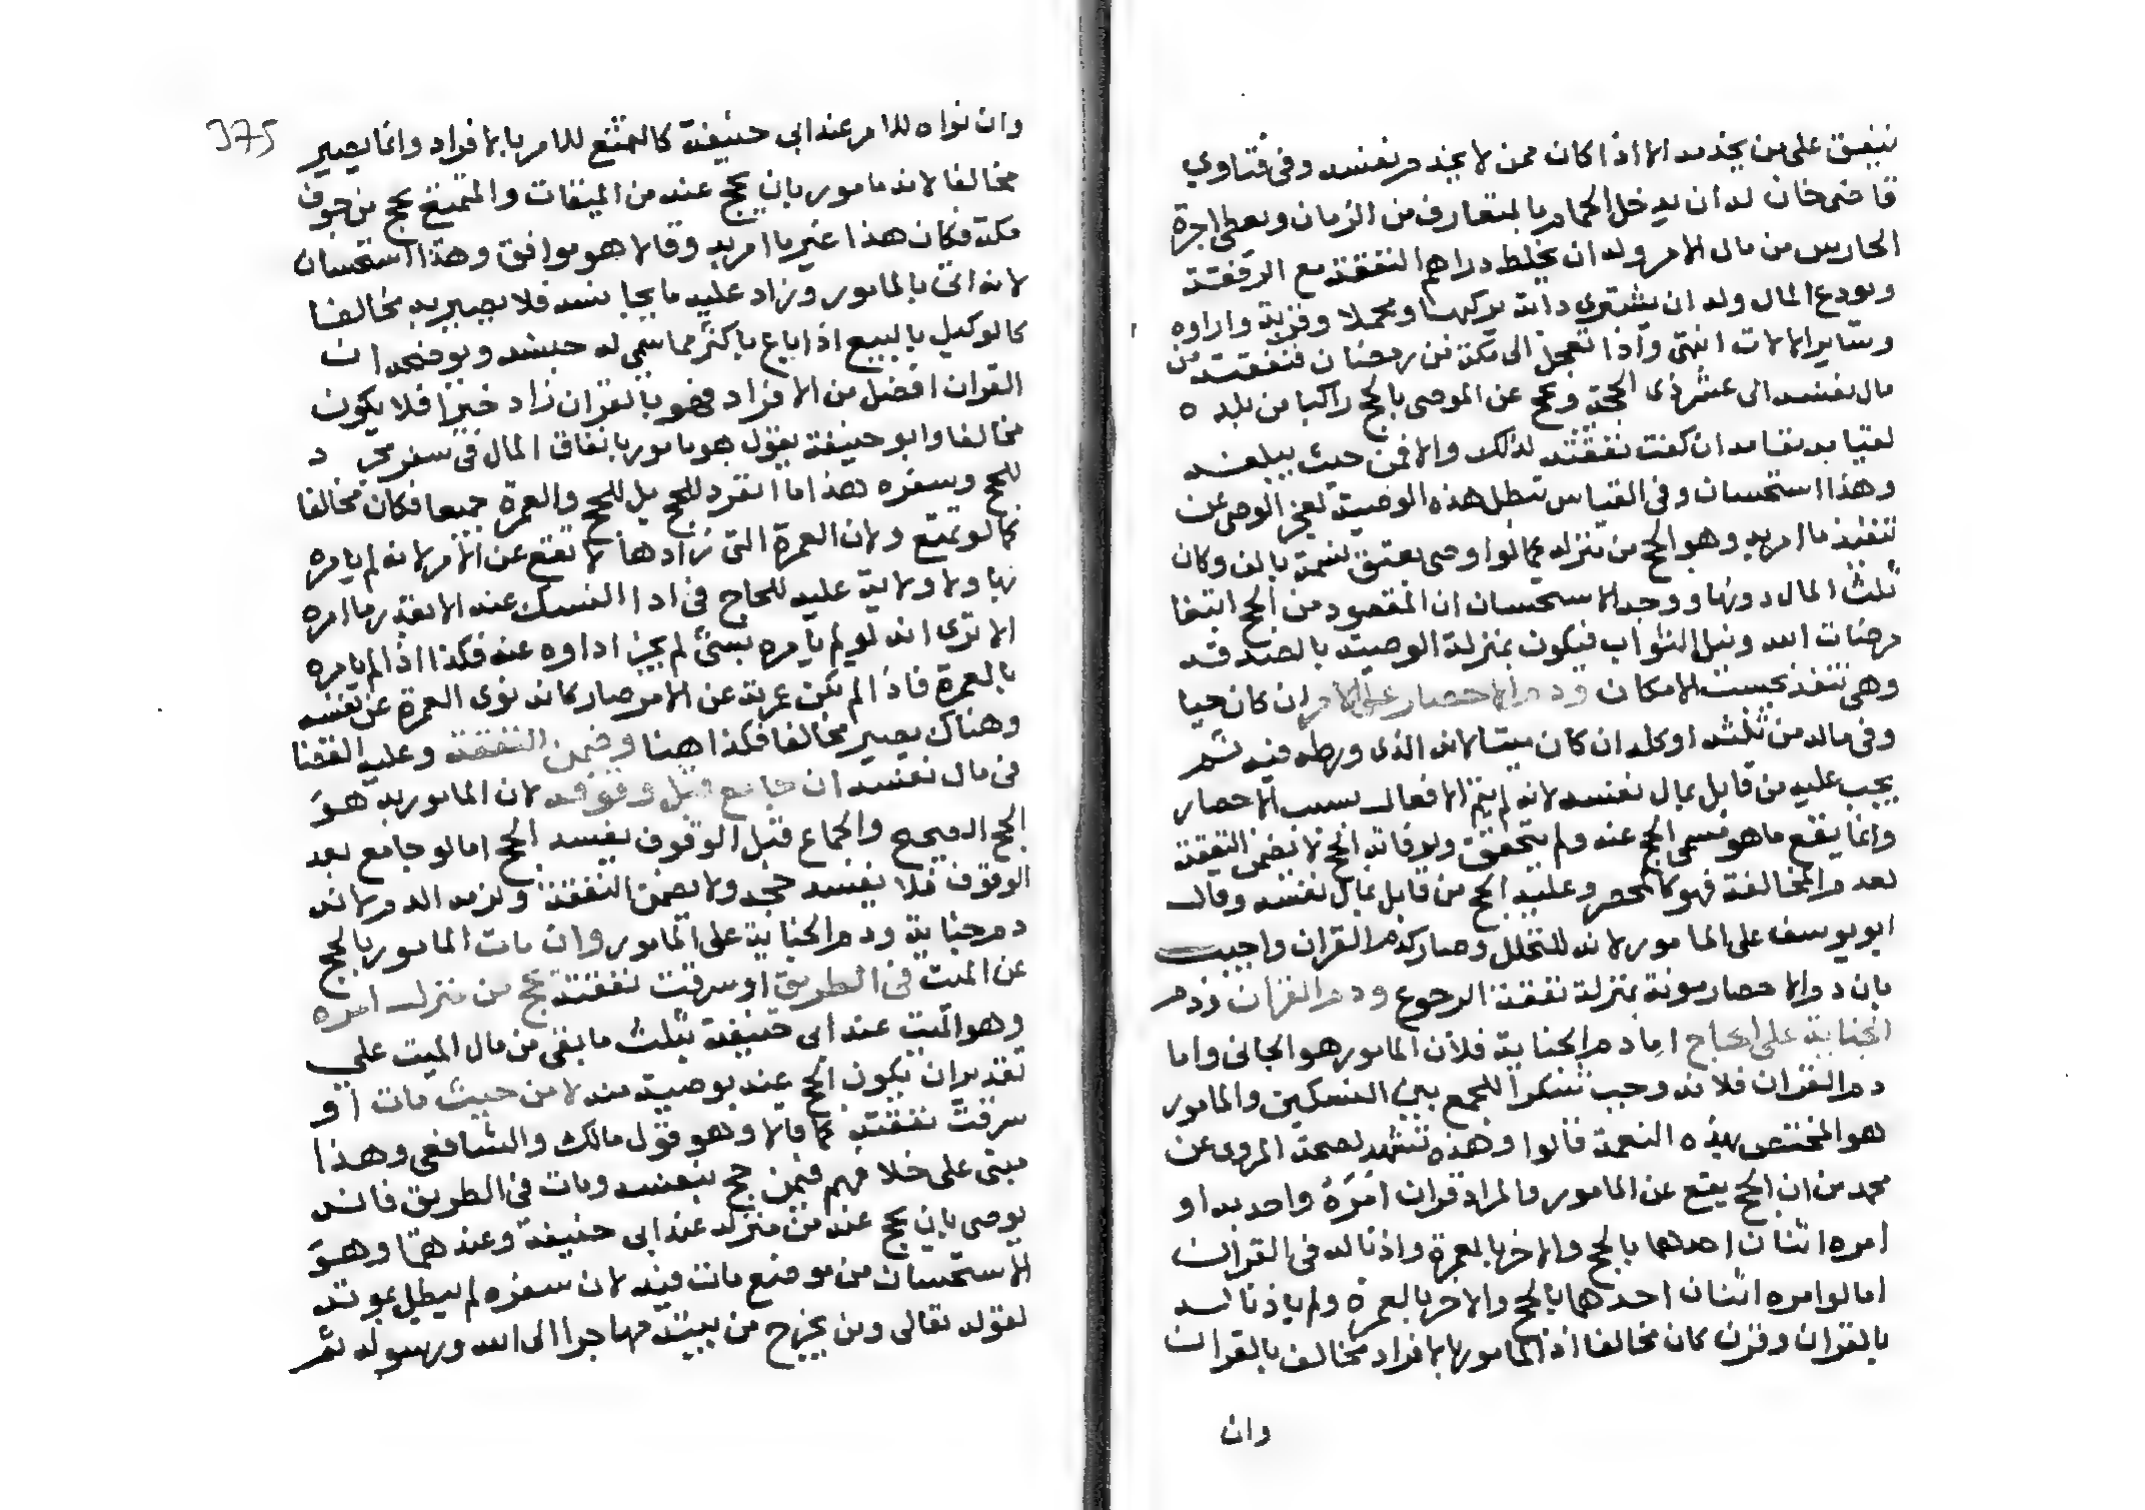 ينفق على من يخدمه الا اذا كان ممن لا يخدم نفسه وفي فتاوي
قاضي خان له ان يدخل الحمام بالمتعارف من الزمان ويعطى اجرة
الحارس من مال الامر وله ان يخلط دراهم النفقة مع الرفقة
ويودع المال وله ان يشترى دابة يركبها ومحملا وقربة واداوه
وسائر الالات انتهى واذا تعجل الى مكة في رمضان فنفقته من
مال نفسه الى عشر ذى الحجة وحج عن الموصى بالحج راكبا من بلده
لقيا به مقامه ان كفت نفقته لذلك والا فمن حيث يبلغه
وهذا استحسان وفى القياس تبطل هذه الوصية لعجز الوصى عن
تنفيذ ما امر به وهو الحج من منزله كما لوا وصى بعتق نسمة بالف وكان
ثلث المال دونها ووجه الاستحسان ان المقصود من الحج ابتغا
مرضات الله ونيل الثواب فيكون بمنزلة الوصية بالصدقه
وهى تنفذ بحسب الامكان ودم الاحصار على الامر ان كان حيا
وفى ماله من ثلثه او كله ان كان ميتا لانه الذى ورطه فيه ثم
يجب عليه من قابل بمال نفسه لانه لم يتم الافعال بسبب الاحصار
وانما يقع ما هو مسمى الحج عنه ولم يتحقق ولو فاته الحج لا يضمن النفقة
لعدم المخالفة فهو كالمحصر وعليه الحج من قابل بمال نفسه وقال
ابو يوسف على المامور لانه للتحلل وصار كدم القران واجيب
بان دم الاحصار مونة بمنزلة نفقة الرجوع ودم القران ودم
الجناية على الحاج اما دم الجناية فلان المامور هو الجانى واما
دم القران فلانه وجب شكرا للجمع بين النسكين والمامور
هو المختص بهذه النعمة قالوا وهذه تشهد لصحة المروى عن
محمد من ان الحج يقع عن المامور والمراد قران امره واحد به او
امره اثنان احدهما بالحج والاخر بالعمرة واذنا له فى القران
اما لو امره اثنان احدهما بالحج والاخر بالعمرة ولم ياذنا له
بالقران وقرن كان مخالفا اذ المامور بالافراد مخالف بالقران
وان
375
وان نواه للامر عند ابى حنيفة كالتمتع للامر بالافراد وانما يصير
مخالفا لانه مامور بان يحج عنه من الميقات والمتمتع يحج من جوف
مكة فكان هذا غير ما امر به وقالا هو موافق وهذا استحسان
لانه اتى بالمامور وزاد عليه ما يجانسه فلا يصير به مخالفا
كالوكيل بالبيع اذا باع باكثر مما سمى له جنسه ويوضحه ان
القران افضل من الافراد فهو بالقران زاد خيرا فلا يكون
مخالفا وابو حنيفة يقول هو مامور بانفاق المال فى سفر مجرد
للحج وسفره هذا ما انفرد للحج بل للحج والعمرة جميعا فكان مخالفا
كما لو تمتع ولان العمرة التى زادها لا تقع عن الامر لانه لم يامره
بها ولا ولاية عليه للحاج فى ادا النسك عنه الا بقدر ما امره
الا ترى انه لو لم يامره بشئ لم يجز اداوه عنه فكذا اذا لم يامره
بالعمرة فاذا لم تكن عمرته عن الامر صار كانه نوى العمرة عن نفسه
وهناك يصير مخالفا فكذا هنا وضمن النفقة وعليه القضا
فى مال نفسه ان جامع قبل وقوفه لان المامور به هو
الحج الصحيح والجماع قبل الوقوف يفسد الحج اما لو جامع بعد
الوقوف فلا يفسد حجه ولا يضمن النفقة ولزمه الدم لانه
دم جناية ودم الجناية على المامور وان مات المامور بالحج
عن الميت فى الطريق او سرقت نفقته يحج من منزل امره
وهو الميت عند ابى حنيفة بثلث ما بقى من مال الميت على
تقدير ان يكون الحج عنه بوصية منه لا من حيث مات او
سرقت نفقته كما قالا وهو قول مالك والشافعى وهذا
مبنى على خلافهم فيمن حج بنفسه ومات فى الطريق فانه
يوصى بان يحج عنه من منزله عند ابى حنيفة وعندهما وهو
الاستحسان من موضع مات فيه لان سفره لم يبطل بموته
لقوله تعالى ومن يخرج من بيته مهاجرا الى الله ورسوله ثم